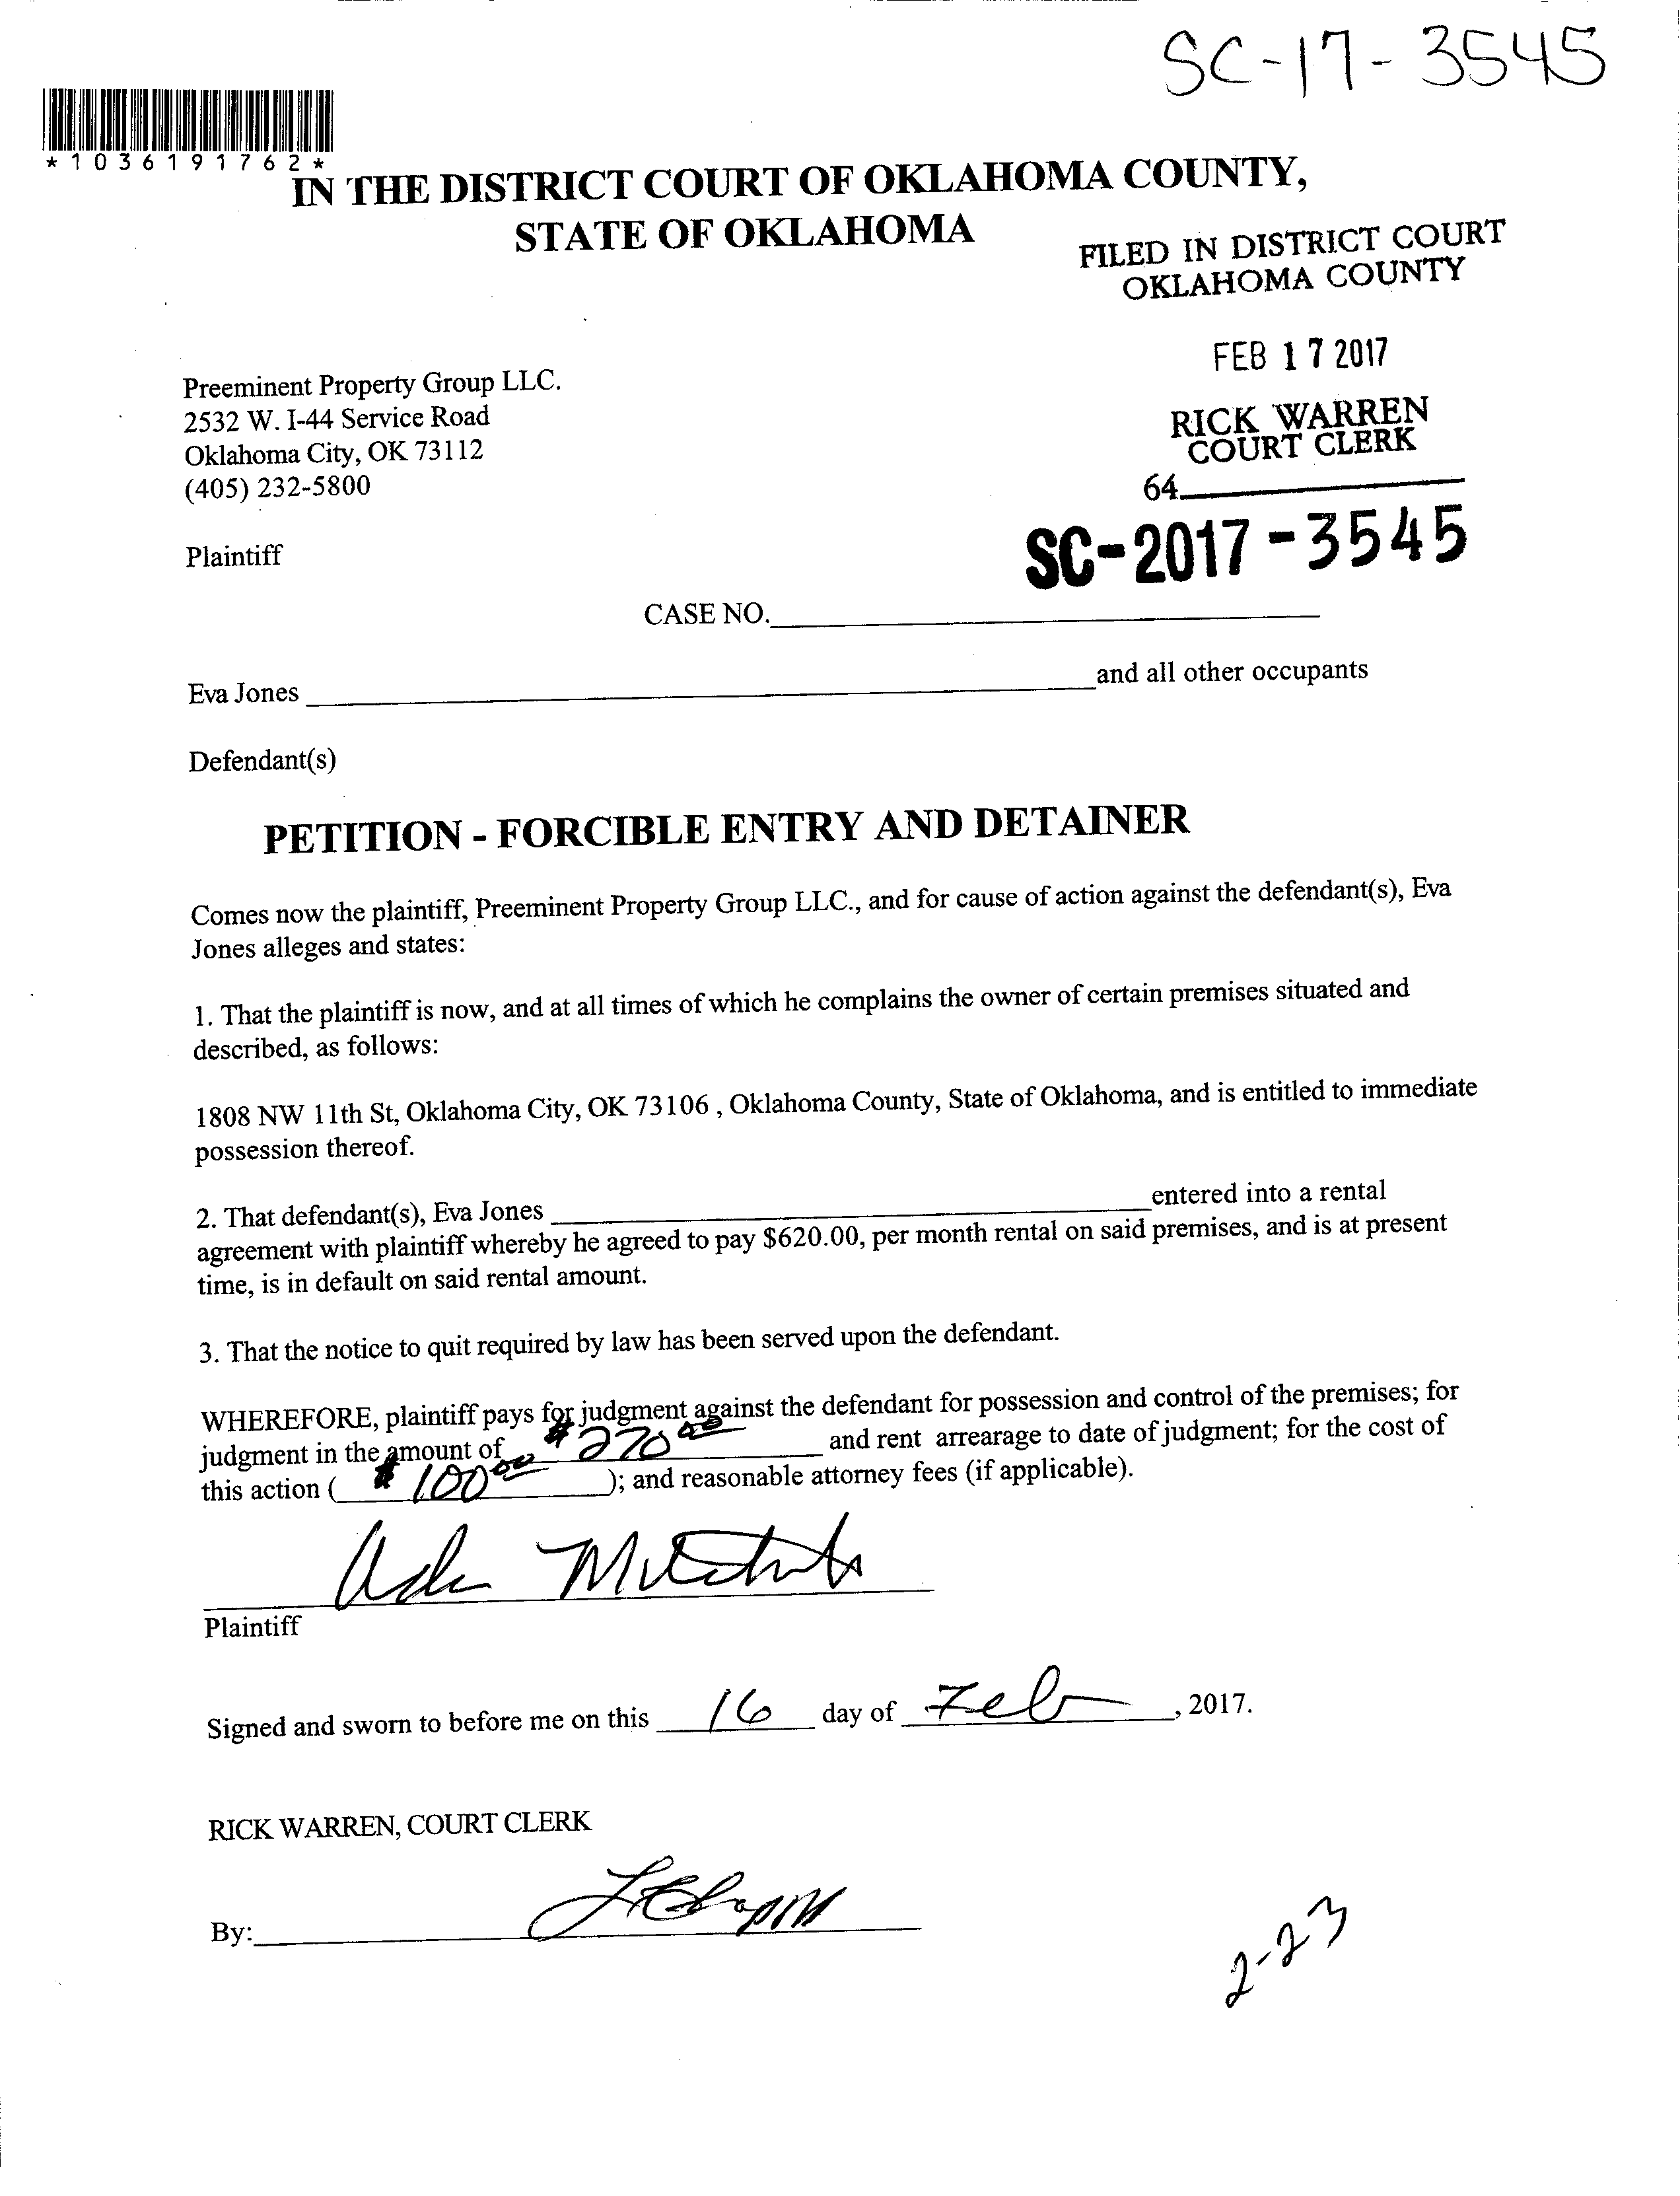 SC-17-3545
*1036191762*
IN THE DISTRICT COURT OF OKLAHOMA COUNTY,
STATE OF OKLAHOMA
FILED IN DISTRICT COURT
OKLAHOMA COUNTY
FEB 17 2017
RICK WARREN
COURT CLERK
64
SC-2017-3545
Preeminent Property Group LLC.
2532 W. I-44 Service Road
Oklahoma City, OK 73112
(405) 232-5800
Plaintiff
CASE NO.
Eva Jones and all other occupants
Defendant(s)
PETITION - FORCIBLE ENTRY AND DETAINER
Comes now the plaintiff, Preeminent Property Group LLC., and for cause of action against the defendant(s), Eva
Jones alleges and states:
1. That the plaintiff is now, and at all times of which he complains the owner of certain premises situated and
described, as follows:
1808 NW 11th St, Oklahoma City, OK 73106 , Oklahoma County, State of Oklahoma, and is entitled to immediate
possession thereof.
2. That defendant(s), Eva Jones entered into a rental
agreement with plaintiff whereby he agreed to pay $620.00, per month rental on said premises, and is at present
time, is in default on said rental amount.
3. That the notice to quit required by law has been served upon the defendant.
WHEREFORE, plaintiff pays for judgment against the defendant for possession and control of the premises; for
judgment in the amount of $270.00 and rent arrearage to date of judgment; for the cost of
this action ( $100.00 ); and reasonable attorney fees (if applicable).
Plaintiff
Signed and sworn to before me on this 16 day of Feb , 2017.
RICK WARREN, COURT CLERK
By:
2-23